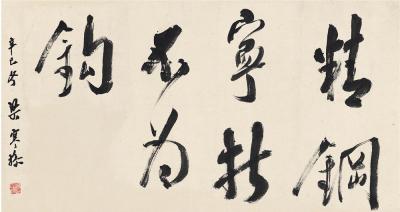 精鋼
寧折
不為
鈎
辛巳冬
梁寒操